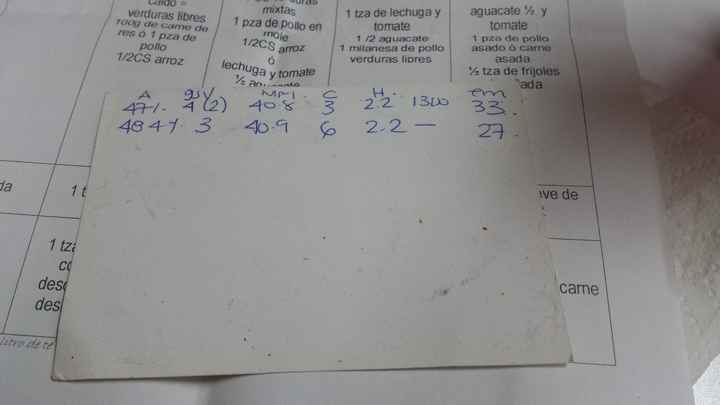 caldo =
verduras libres
100g de carne de
res ó 1 pza de
pollo
1/2CS arroz
mixtas
1 pza de pollo en
mole
1/2CS arroz
ó
lechuga y tomate
1 tza de lechuga y
tomate
1 /2 aguacate
1 milanesa de pollo
verduras libres
aguacate ½ y
tomate
1 pza de pollo
asado ó carne
asada
½ tza de frijoles
ada
A gsv MM. C H. em
47%. 4 (2) 40.8 3 2.2 1300 33.
48.4%. 3 40.9 6 2.2 — 27.
da
1 t
ve de
1 tza
co
desc
des
carne